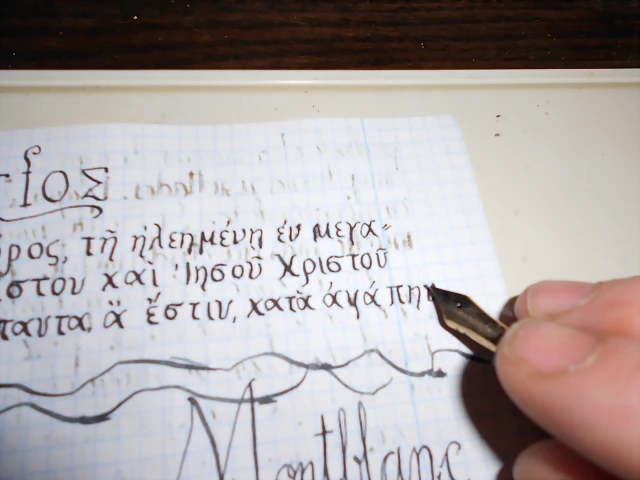 ΤΙΟΣ
ρος, τῇ ἠλεημένη ἐν μεγα-
ίστου καὶ Ἰησοῦ Χριστοῦ
ταυτα, ἃ ἔστιν, κατὰ ἀγάπην
Montblanc